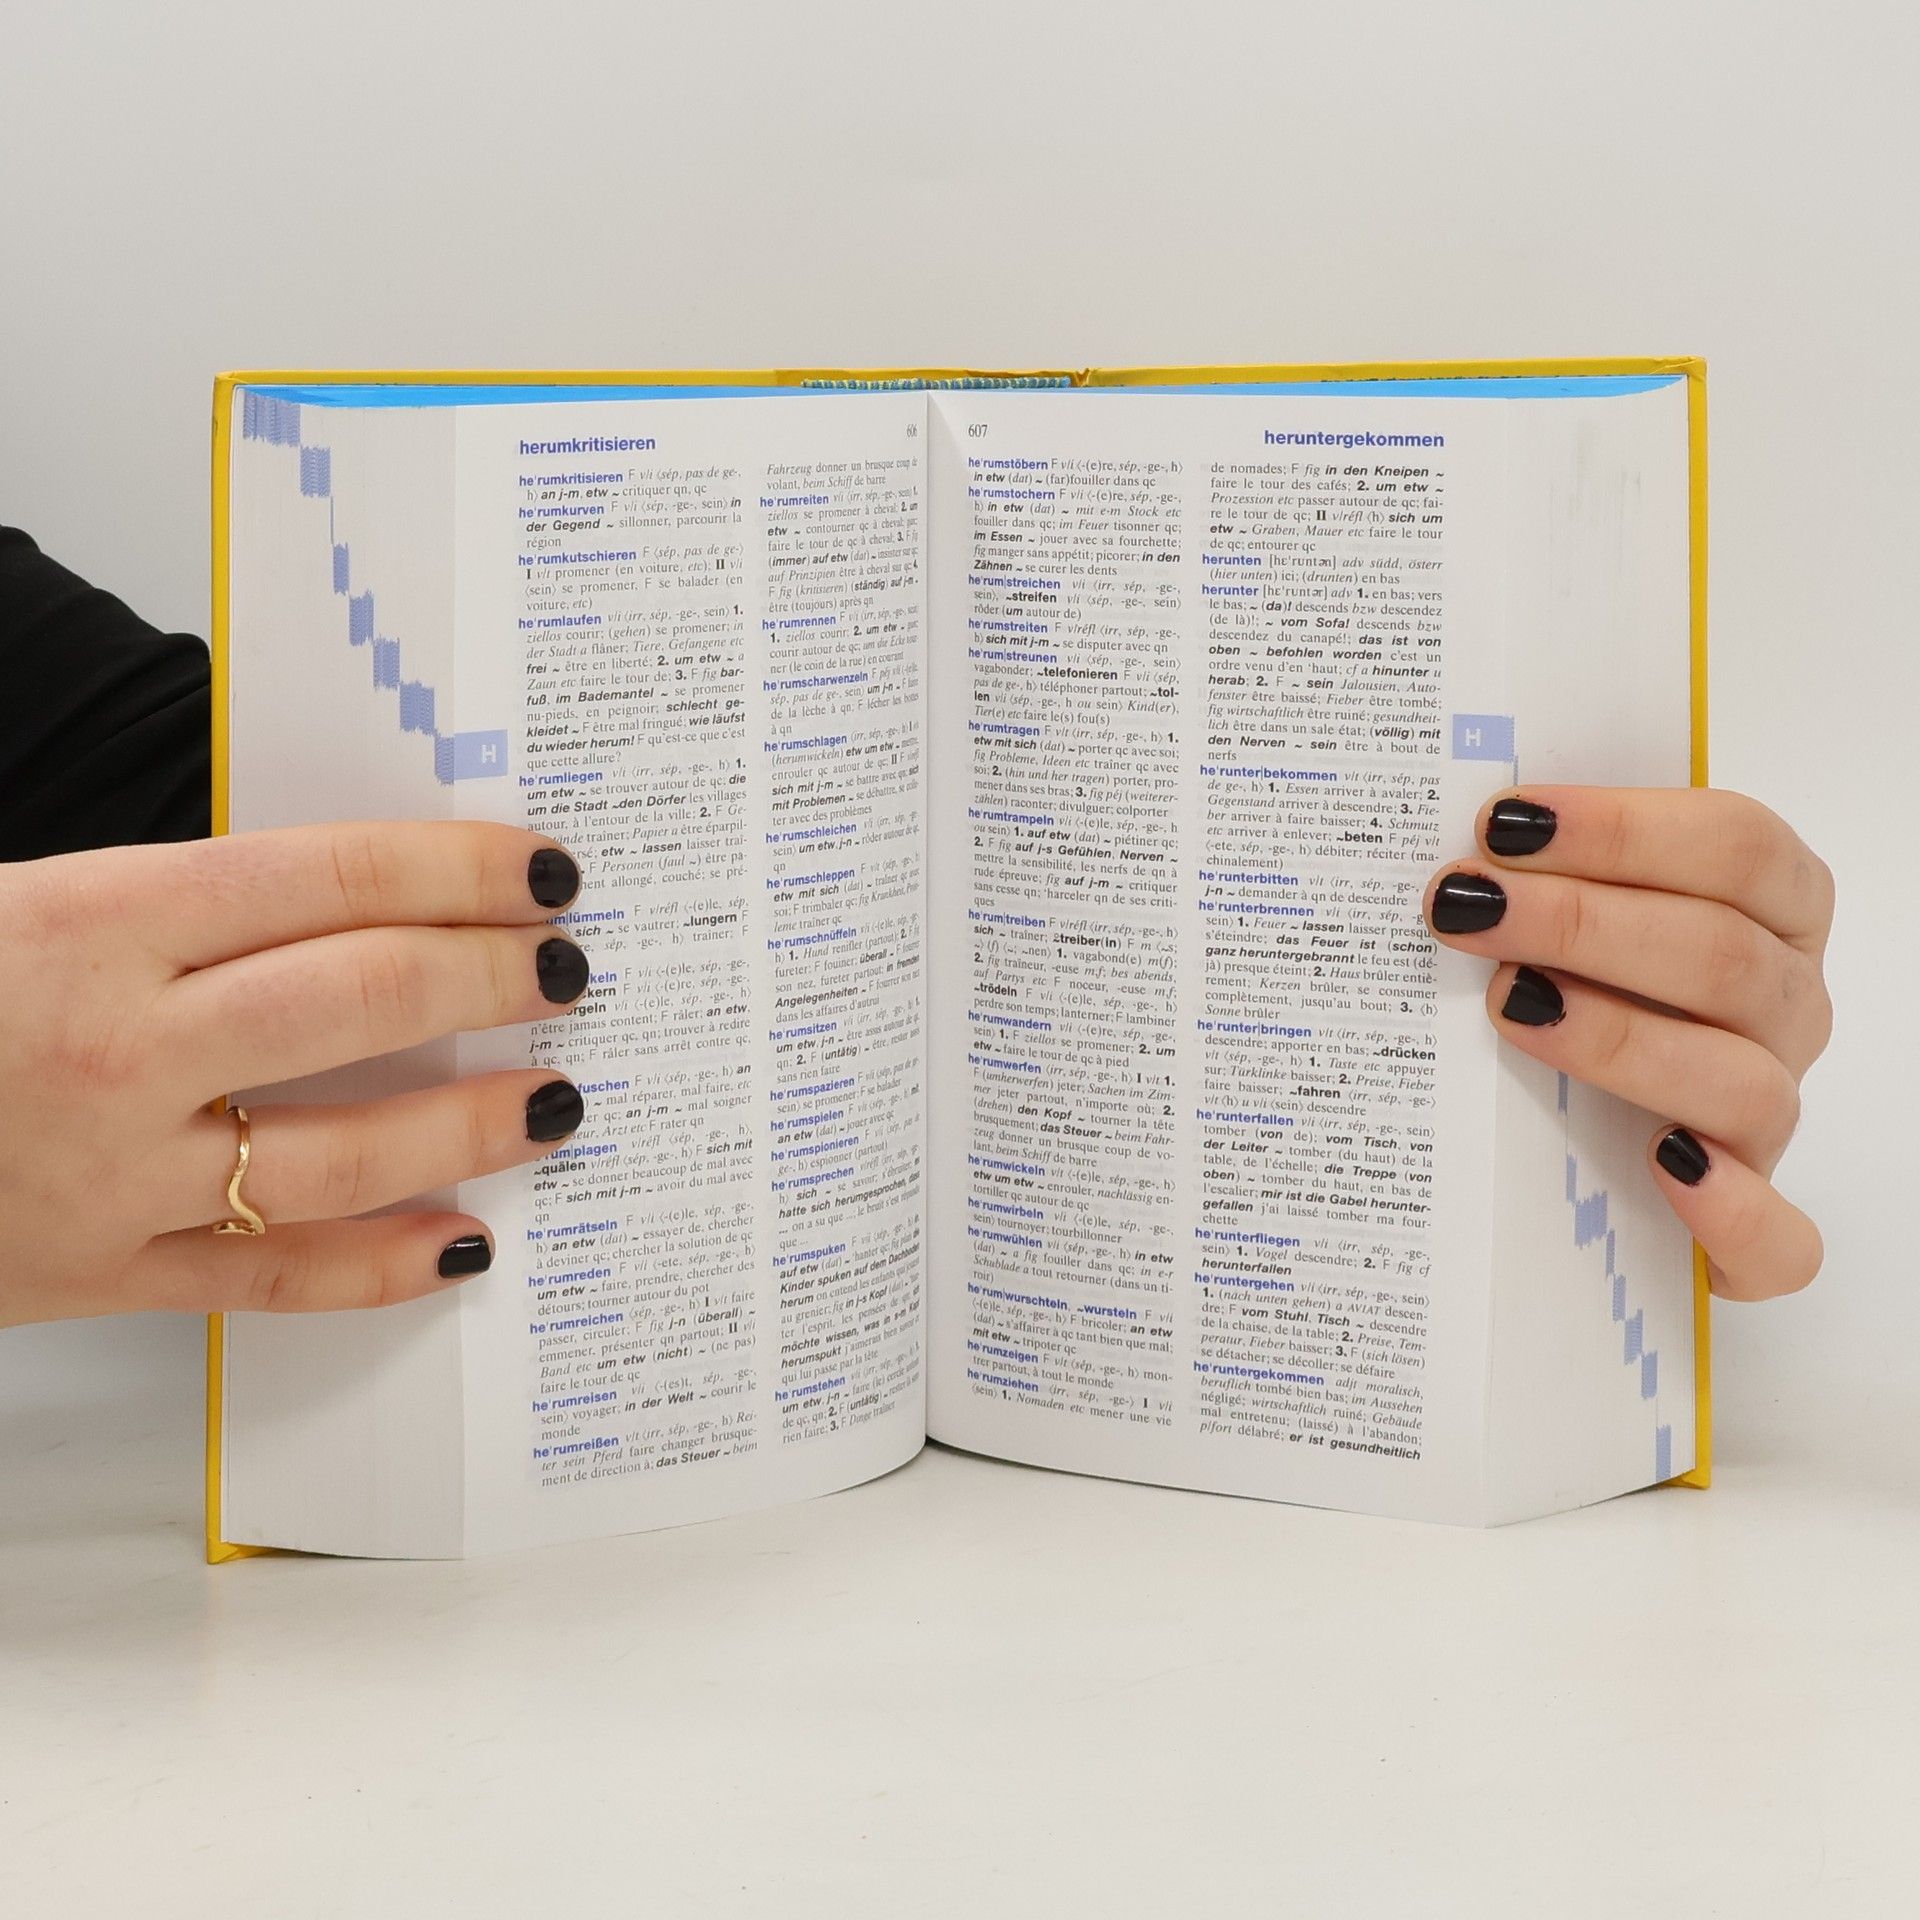 herumkritisieren
606
he'rumkritisieren F v/i ⟨sép, pas de ge-,
h⟩ an j-m, etw ~ critiquer qn, qc
he'rumkurven F v/i ⟨sép, -ge-, sein⟩ in
der Gegend ~ sillonner, parcourir la
région
he'rumkutschieren F ⟨sép, pas de ge-⟩
I v/t promener (en voiture, etc); II v/i
⟨sein⟩ se promener, F se balader (en
voiture, etc)
he'rumlaufen v/i ⟨irr, sép, -ge-, sein⟩ 1.
ziellos courir; (gehen) se promener; in
der Stadt a flâner; Tiere, Gefangene etc
frei ~ être en liberté; 2. um etw ~ a
Zaun etc faire le tour de; 3. F fig bar-
fuß, im Bademantel ~ se promener
nu-pieds, en peignoir; schlecht ge-
kleidet ~ F être mal fringué; wie läufst
du wieder herum! F qu'est-ce que c'est
que cette allure?
he'rumliegen v/i ⟨irr, sép, -ge-, h⟩ 1.
um etw ~ se trouver autour de qc; die
um die Stadt ~den Dörfer les villages
autour, à l'entour de la ville; 2. F Ge-
traîner; Papier a être éparpil-
etw ~ lassen laisser traî-
F Personen (faul ~) être pa-
allongé, couché; se pré-
lümmeln F v/réfl ⟨-(e)le, sép,
sich ~ se vautrer; ~lungern F
sép, -ge-, h⟩ traîner; F
F v/i ⟨-(e)le, sép, -ge-,
F v/i ⟨-(e)re, sép, -ge-,
v/i ⟨-(e)le, sép, -ge-, h⟩
n'être jamais content; F râler; an etw,
j-m ~ critiquer qc, qn; trouver à redire
à qc, qn; F râler sans arrêt contre qc,
F v/i ⟨sép, -ge-, h⟩ an
~ mal réparer, mal faire, etc
qc; an j-m ~ mal soigner
Arzt etc F rater qn
plagen v/réfl ⟨sép, -ge-, h⟩,
~quälen v/réfl ⟨sép, -ge-, h⟩ F sich mit
etw ~ se donner beaucoup de mal avec
qc; F sich mit j-m ~ avoir du mal avec
qn
he'rumrätseln F v/i ⟨-(e)le, sép, -ge-,
h⟩ an etw (dat) ~ essayer de, chercher
à deviner qc; chercher la solution de qc
he'rumreden F v/i ⟨-ete, sép, -ge-, h⟩
um etw ~ faire, prendre, chercher des
détours; tourner autour du pot
he'rumreichen ⟨sép, -ge-, h⟩ I v/t faire
passer, circuler; F fig j-n (überall) ~
emmener, présenter qn partout; II v/i
Band etc um etw (nicht) ~ (ne pas)
faire le tour de qc
he'rumreisen v/i ⟨-(es)t, sép, -ge-,
sein⟩ voyager; in der Welt ~ courir le
monde
he'rumreißen v/t ⟨irr, sép, -ge-, h⟩ Rei-
ter sein Pferd faire changer brusque-
ment de direction à; das Steuer ~ beim
Fahrzeug donner un brusque coup de
volant, beim Schiff de barre
he'rumreiten v/i ⟨irr, sép, -ge-, sein⟩ 1.
ziellos se promener à cheval; 2. um
etw ~ contourner qc à cheval;
faire le tour de qc à cheval; 3. F fig
(immer) auf etw (dat) ~ insister sur qc;
auf Prinzipien être à cheval sur qc; 4.
F fig (kritisieren) (ständig) auf j-m ~
être (toujours) après qn
he'rumrennen F v/i ⟨irr, sép, -ge-, sein⟩
1. ziellos courir; 2. um etw ~
courir autour de qc; um die Ecke tour-
ner (le coin de la rue) en courant
he'rumscharwenzeln F péj v/i ⟨-(e)le,
sép, pas de ge-, sein⟩ um j-n ~ F faire
de la lèche à qn; F lécher les bottes
à qn
he'rumschlagen ⟨irr, sép, -ge-, h⟩ I v/t
(herumwickeln) etw um etw ~ mettre,
enrouler qc autour de qc; II F v/réfl
sich mit j-m ~ se battre avec qn; sich
mit Problemen ~ se débattre, se colle-
ter avec des problèmes
he'rumschleichen v/i ⟨irr, sép, -ge-,
sein⟩ um etw, j-n ~ rôder autour de qc,
qn
he'rumschleppen F v/t ⟨sép, -ge-, h⟩
etw mit sich (dat) ~ traîner qc avec
soi; F trimbaler qc; fig Krankheit, Prob-
leme traîner qc
he'rumschnüffeln v/i ⟨-(e)le, sép, -ge-,
h⟩ 1. Hund renifler (partout); 2. F fig
fureter; F fouiner; überall ~ F fourrer
son nez, fureter partout; in fremden
Angelegenheiten ~ F fourrer son nez
dans les affaires d'autrui
he'rumsitzen v/i ⟨irr, sép, -ge-, h⟩ 1.
um etw, j-n ~ être assis autour de qc,
qn; 2. F (untätig) ~ être, rester assis
sans rien faire
he'rumspazieren F v/i ⟨sép, pas de ge-,
sein⟩ se promener; F se balader
he'rumspielen F v/i ⟨sép, -ge-, h⟩ mit,
an etw (dat) ~ jouer avec qc
he'rumspionieren F v/i ⟨sép, pas de
ge-, h⟩ espionner (partout)
he'rumsprechen v/réfl ⟨irr, sép, -ge-,
h⟩ sich ~ se savoir; s'ébruiter; es
hatte sich herumgesprochen, dass
... on a su que ...; le bruit s'est répandu
que ...
he'rumspuken F v/i ⟨sép, -ge-, h⟩
auf etw (dat) ~ 'hanter qc; fig
Kinder spuken auf dem Dachboden
herum on entend les enfants qui jouent
au grenier; fig in j-s Kopf (dat) ~
ter l'esprit, les pensées de qn; ich
möchte wissen, was in s-m Kopf
herumspukt j'aimerais bien savoir ce
qui lui passe par la tête
he'rumstehen v/i ⟨irr, sép, -ge-, h⟩ 1.
um etw, j-n ~ faire (le) cercle autour
de qc, qn; 2. F (untätig) ~ rester là sans
rien faire; 3. F Dinge traîner
607
heruntergekommen
he'rumstöbern F v/i ⟨-(e)re, sép, -ge-, h⟩
in etw (dat) ~ (far)fouiller dans qc
he'rumstochern F v/i ⟨-(e)re, sép, -ge-,
h⟩ in etw (dat) ~ mit e-m Stock etc
fouiller dans qc; im Feuer tisonner qc;
im Essen ~ jouer avec sa fourchette;
fig manger sans appétit; picorer; in den
Zähnen ~ se curer les dents
he'rum|streichen v/i ⟨irr, sép, -ge-,
sein⟩, ~streifen v/i ⟨sép, -ge-, sein⟩
rôder (um autour de)
he'rumstreiten F v/réfl ⟨irr, sép, -ge-,
h⟩ sich mit j-m ~ se disputer avec qn
he'rum|streunen v/i ⟨sép, -ge-, sein⟩
vagabonder; ~telefonieren F v/i ⟨sép,
pas de ge-, h⟩ téléphoner partout; ~tol-
len v/i ⟨sép, -ge-, h ou sein⟩ Kind(er),
Tier(e) etc faire le(s) fou(s)
he'rumtragen F v/t ⟨irr, sép, -ge-, h⟩ 1.
etw mit sich (dat) ~ porter qc avec soi;
fig Probleme, Ideen etc traîner qc avec
soi; 2. (hin und her tragen) porter, pro-
mener dans ses bras; 3. fig péj (weiterer-
zählen) raconter; divulguer; colporter
he'rumtrampeln F v/i ⟨-(e)le, sép, -ge-, h
ou sein⟩ 1. auf etw (dat) ~ piétiner qc;
2. F fig auf j-s Gefühlen, Nerven ~
mettre la sensibilité, les nerfs de qn à
rude épreuve; fig auf j-m ~ critiquer
sans cesse qn; 'harceler qn de ses criti-
ques
he'rum|treiben F v/réfl ⟨irr, sép, -ge-, h⟩
sich ~ traîner; 2treiber(in) F m ⟨~s;
~⟩ (f) ⟨~; ~nen⟩ 1. vagabond(e) m(f);
2. fig traîneur, -euse m,f; bes abends,
auf Partys etc F noceur, -euse m,f;
~trödeln F v/i ⟨-(e)le, sép, -ge-, h⟩
perdre son temps; lanterner; F lambiner
he'rumwandern v/i ⟨-(e)re, sép, -ge-,
sein⟩ 1. F ziellos se promener; 2. um
etw ~ faire le tour de qc à pied
he'rumwerfen ⟨irr, sép, -ge-, h⟩ I v/t 1.
F (umherwerfen) jeter; Sachen im Zim-
mer jeter partout, n'importe où; 2.
(drehen) den Kopf ~ tourner la tête
brusquement; das Steuer ~ beim Fahr-
zeug donner un brusque coup de vo-
lant, beim Schiff de barre
he'rumwickeln v/t ⟨-(e)le, sép, -ge-, h⟩
etw um etw ~ enrouler, nachlässig en-
tortiller qc autour de qc
he'rumwirbeln v/i ⟨-(e)le, sép, -ge-,
sein⟩ tournoyer; tourbillonner
he'rumwühlen v/i ⟨sép, -ge-, h⟩ in etw
(dat) ~ a fig fouiller dans qc; in e-r
Schublade a tout retourner (dans un ti-
roir)
he'rum|wurschteln, ~wursteln F v/i
⟨-(e)le, sép, -ge-, h⟩ F bricoler; an etw
(dat) ~ s'affairer à qc tant bien que mal;
mit etw ~ tripoter qc
he'rumzeigen F v/t ⟨sép, -ge-, h⟩ mon-
trer partout, à tout le monde
he'rumziehen ⟨irr, sép, -ge-⟩ I v/i
⟨sein⟩ 1. Nomaden etc mener une vie
de nomades; F fig in den Kneipen ~
faire le tour des cafés; 2. um etw ~
Prozession etc passer autour de qc; fai-
re le tour de qc; II v/réfl ⟨h⟩ sich um
etw ~ Graben, Mauer etc faire le tour
de qc; entourer qc
herunten [hɛ'rʊntən] adv südd, österr
(hier unten) ici; (drunten) en bas
herunter [hɛ'rʊntər] adv 1. en bas; vers
le bas; ~ (da)! descends bzw descendez
(de là)!; ~ vom Sofa! descends bzw
descendez du canapé!; das ist von
oben ~ befohlen worden c'est un
ordre venu d'en 'haut; cf a hinunter u
herab; 2. F ~ sein Jalousien, Auto-
fenster être baissé; Fieber être tombé;
fig wirtschaftlich être ruiné; gesundheit-
lich être dans un sale état; (völlig) mit
den Nerven ~ sein être à bout de
nerfs
he'runter|bekommen v/t ⟨irr, sép, pas
de ge-, h⟩ 1. Essen arriver à avaler; 2.
Gegenstand arriver à descendre; 3. Fie-
ber arriver à faire baisser; 4. Schmutz
etc arriver à enlever; ~beten F péj v/t
⟨-ete, sép, -ge-, h⟩ débiter; réciter (ma-
chinalement)
he'runterbitten v/t ⟨irr, sép, -ge-,
j-n ~ demander à qn de descendre
he'runterbrennen v/i ⟨irr, sép,
sein⟩ 1. Feuer ~ lassen laisser
s'éteindre; das Feuer ist (schon)
ganz heruntergebrannt le feu est (dé-
jà) presque éteint; 2. Haus brûler entiè-
rement; Kerzen brûler, se consumer
complètement, jusqu'au bout; 3. ⟨h⟩
Sonne brûler
he'runter|bringen v/t ⟨irr, sép, -ge-, h⟩
descendre; apporter en bas; ~drücken
v/t ⟨sép, -ge-, h⟩ 1. Taste etc appuyer
sur; Türklinke baisser; 2. Preise, Fieber
faire baisser; ~fahren ⟨irr, sép, -ge-⟩
v/t ⟨h⟩ u v/i ⟨sein⟩ descendre
he'runterfallen v/i ⟨irr, sép, -ge-, sein⟩
tomber (von de); vom Tisch, von
der Leiter ~ tomber (du haut) de la
table, de l'échelle; die Treppe (von
oben) ~ tomber du haut, en bas de
l'escalier; mir ist die Gabel herunter-
gefallen j'ai laissé tomber ma four-
chette
he'runterfliegen v/i ⟨irr, sép, -ge-,
sein⟩ 1. Vogel descendre; 2. F fig cf
herunterfallen
he'runtergehen v/i ⟨irr, sép, -ge-, sein⟩
1. (nach unten gehen) a AVIAT descen-
dre; F vom Stuhl, Tisch ~ descendre
de la chaise, de la table; 2. Preise, Tem-
peratur, Fieber baisser; 3. F (sich lösen)
se détacher; se décoller; se défaire
he'runtergekommen adjt moralisch,
beruflich tombé bien bas; im Aussehen
négligé; wirtschaftlich ruiné; Gebäude
mal entretenu; (laissé) à l'abandon;
p/fort délabré; er ist gesundheitlich
H
H